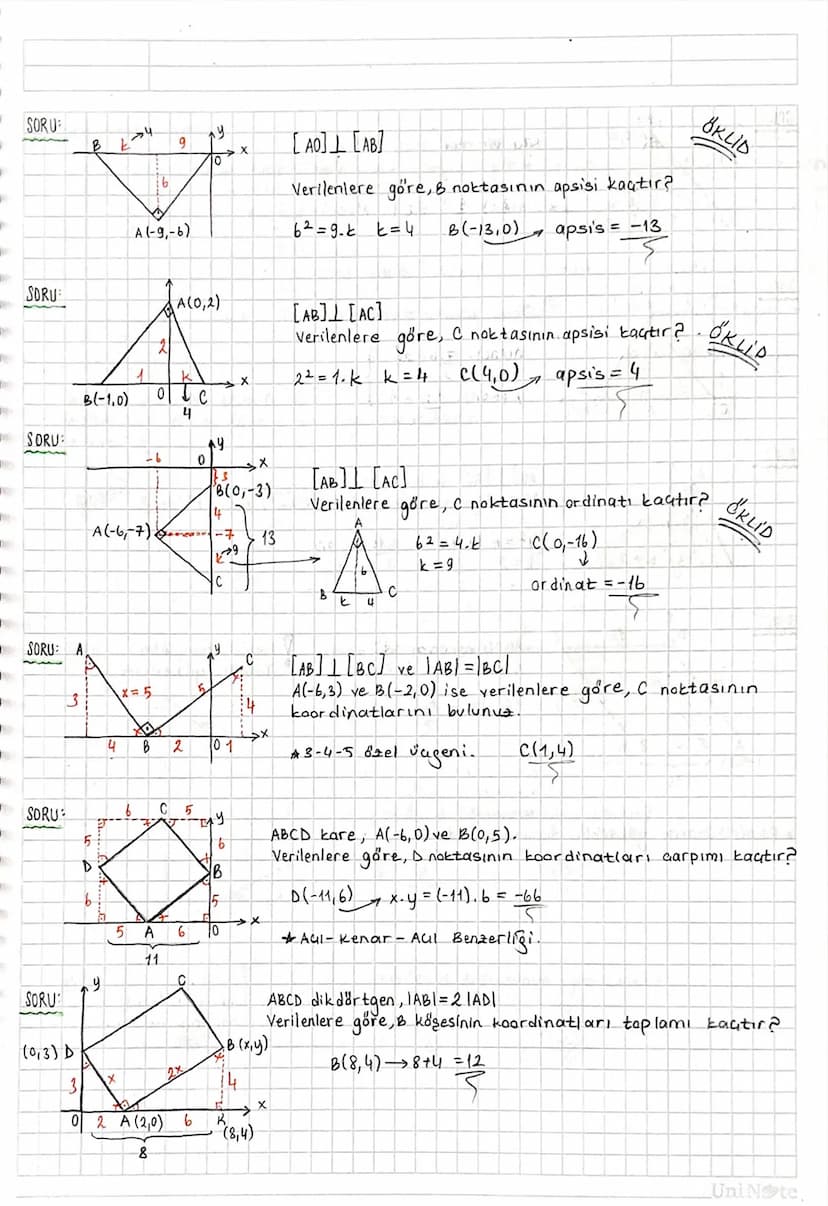 SORU:
B k → 4 9 y
O x
6
A(-9,-6)
[AO]⊥[AB]
ÖKLİD
Verilenlere göre, B noktasının apsisi kaçtır?
6² = 9.k k=4 B(-13,0) → apsis = -13
SORU:
A(0,2)
2
1 k x
B(-1,0) O ↓ C
4
[AB]⊥[AC]
Verilenlere göre, C noktasının apsisi kaçtır? ÖKLİD
2² = 1.k k=4 C(4,0) → apsis = 4
SORU:
-6 O y
x
3
B(0,-3)
4
A(-6,-7) -7 13
k→9
C
[AB]⊥[AC]
Verilenlere göre, C noktasının ordinatı kaçtır? ÖKLİD
A
6
B k 4 C
6² = 4.k C(0,-16)
k=9 ↓
ordinat = -16
SORU: A y C
3 x=5 5 4
4 B 2 O 1 x
[AB]⊥[BC] ve |AB|=|BC|
A(-6,3) ve B(-2,0) ise verilenlere göre, C noktasının
koordinatlarını bulunuz.
★3-4-5 özel üçgeni. C(1,4)
SORU:
6 C 5 y
5 6
D B
6 5
5 A 6 O x
11
ABCD kare, A(-6,0) ve B(0,5).
Verilenlere göre, D noktasının koordinatları çarpımı kaçtır?
D(-11,6) → x.y = (-11).6 = -66
★ Açı-Kenar-Açı Benzerliği.
SORU:
y C
(0,3) D B(x,y)
3 x 2x 4
O 2 A(2,0) 6 K x
(8,4)
8
ABCD dikdörtgen, |AB|=2|AD|
Verilenlere göre, B köşesinin koordinatları toplamı kaçtır?
B(8,4) → 8+4 = 12
UniNote